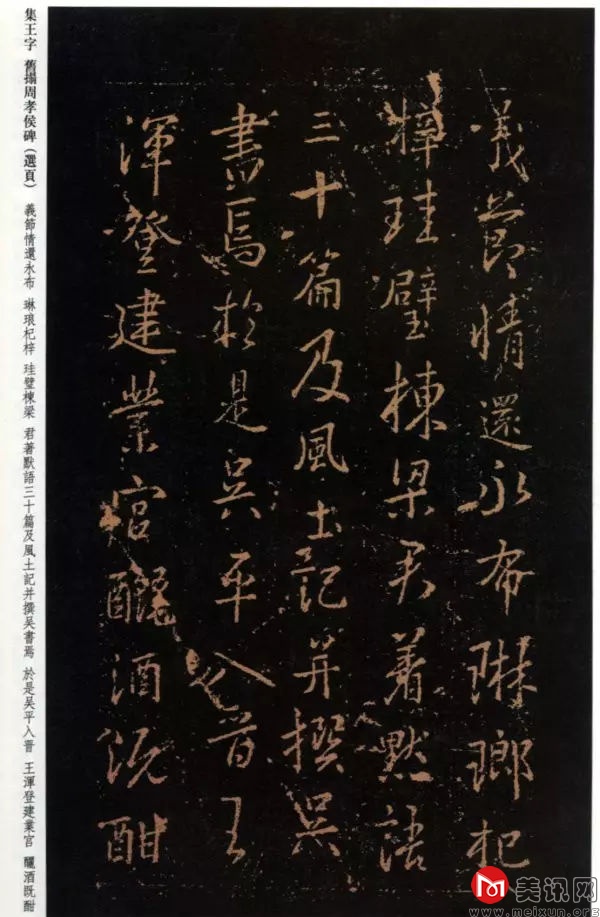 義節情還永布琳瑯杞
梓珪璧棟梁君著默語
三十篇及風土記并撰吳
書焉於是吳平入晉王
渾登建業宮釃酒既酣
集王字 舊搨周孝侯碑（選頁） 義節情還永布 琳琅杞梓 珪璧棟梁 君著默語三十篇及風土記并撰吳書焉 於是吳平入晉 王渾登建業宮 釃酒既酣
美讯网
www.meixun.org